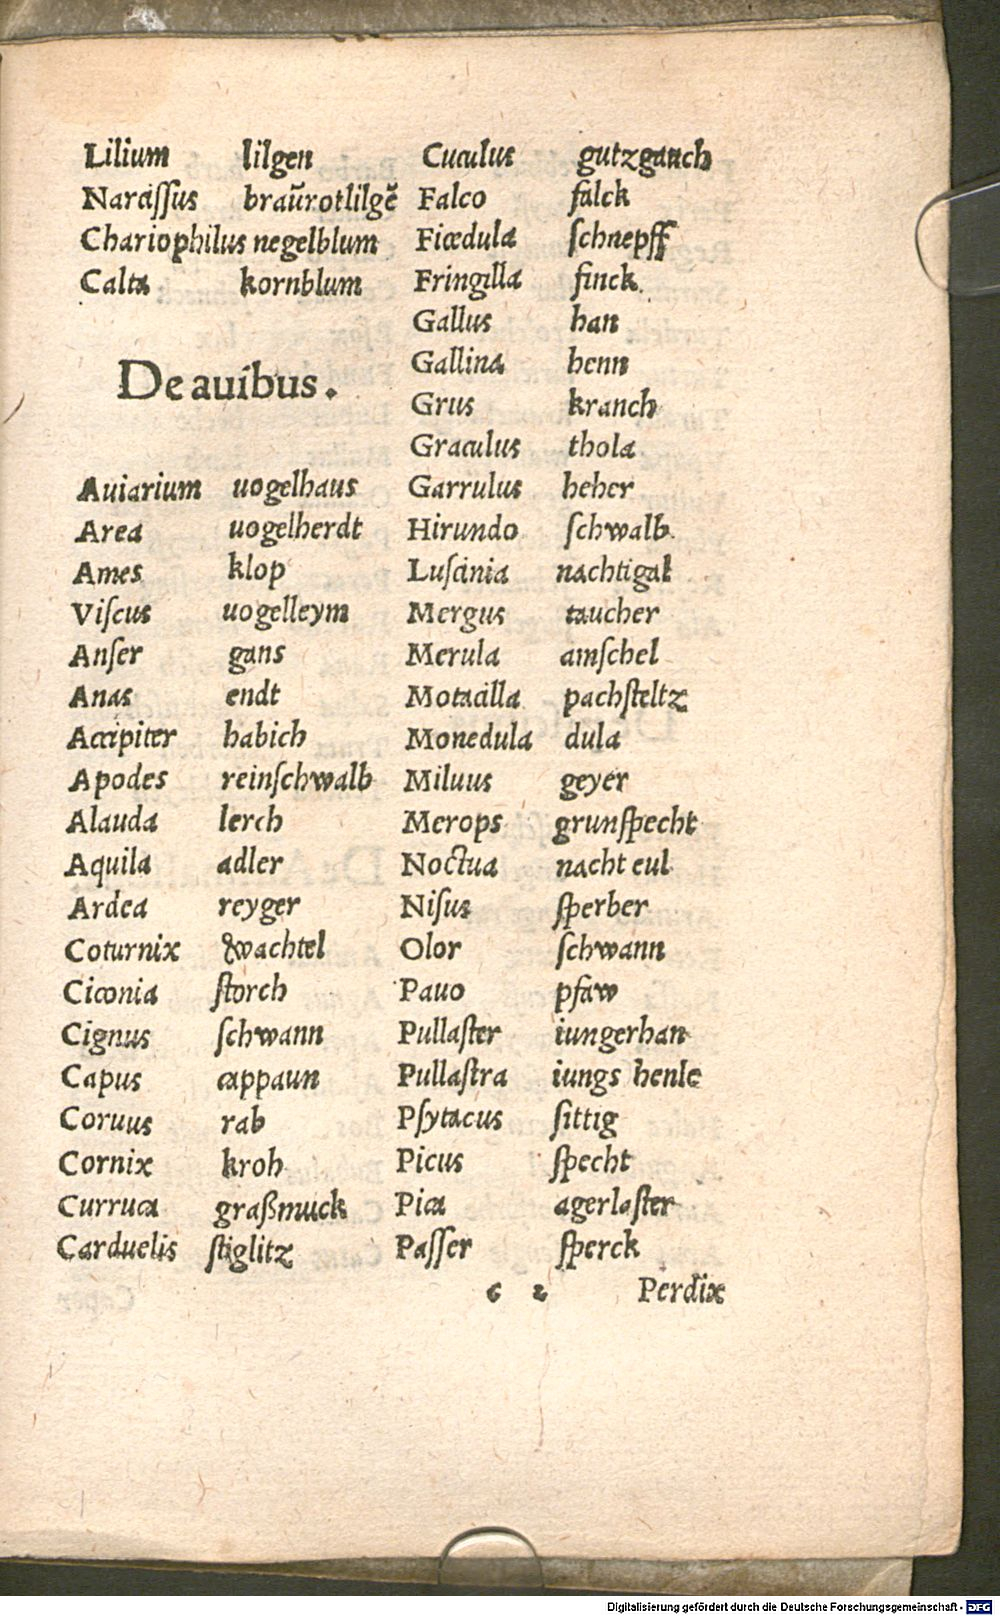 Lilium lilgen
Narcißus braũrotlilgẽ
Chariophilus negelblum
Calta kornblum
De auibus.
Auiarium uogelhaus
Area uogelherdt
Ames klop
Viſcus uogelleym
Anſer gans
Anas endt
Accipiter habich
Apodes reinſchwalb
Alauda lerch
Aquila adler
Ardea reyger
Coturnix wachtel
Ciconia ſtorch
Cignus ſchwann
Capus cappaun
Coruus rab
Cornix kroh
Curruca graßmuck
Carduelis ſtiglitz
Cuculus gutzgauch
Falco falck
Ficedula ſchnepff
Fringilla finck
Gallus han
Gallina henn
Grus kranch
Graculus thola
Garrulus heher
Hirundo ſchwalb
Luſcinia nachtigal
Mergus taucher
Merula amſchel
Motacilla pachſteltz
Monedula dula
Miluus geyer
Merops grunſpecht
Noctua nacht eul
Niſus ſperber
Olor ſchwann
Pauo pfaw
Pullaſter iungerhan
Pullaſtra iungs henle
Pſytacus ſittig
Picus ſpecht
Pica agerlaſter
Paſſer ſperck
6 2 Perdix
Digitalisierung gefördert durch die Deutsche Forschungsgemeinschaft - DFG